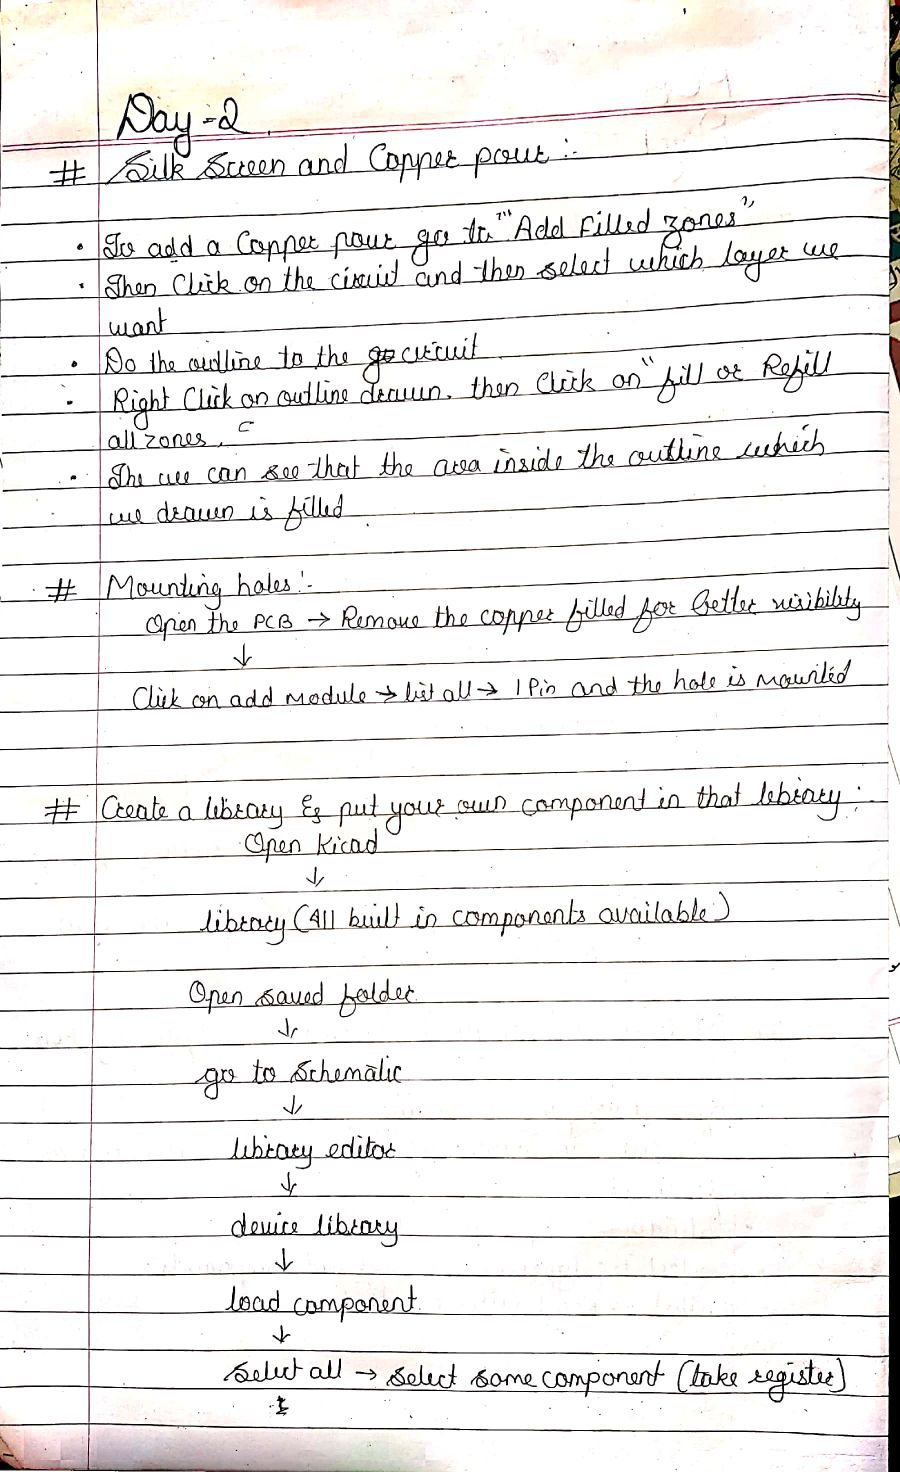 Day-2
# Silk Screen and Copper pour :-
• To add a Copper pour go to "Add Filled zones"
• Then Click on the circuit and then select which layer we
want
• Do the outline to the circuit
• Right Click on outline drawn. then Click on "fill or Refill
all zones.
• The we can see that the area inside the outline which
we drawn is filled
# Mounting holes :-
Open the PCB → Remove the copper filled for better visibility
↓
Click on add module → list all → 1 Pin and the hole is mounted
# Create a library & put your own component in that library :-
Open Kicad
↓
library (All built in components available)
Open saved folder
↓
go to Schematic
↓
library editor
↓
device library
↓
load component
↓
Select all → select some component (take register)
↓